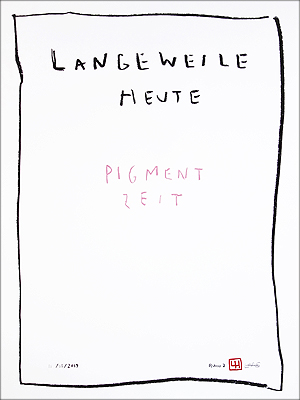 LANGEWEILE
HEUTE
PIGMENT
ZEIT